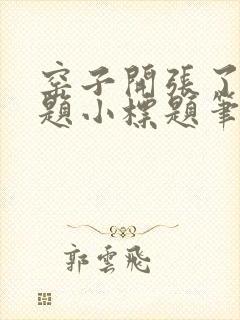 窑子開張了
題小標題筆
郭雲飛